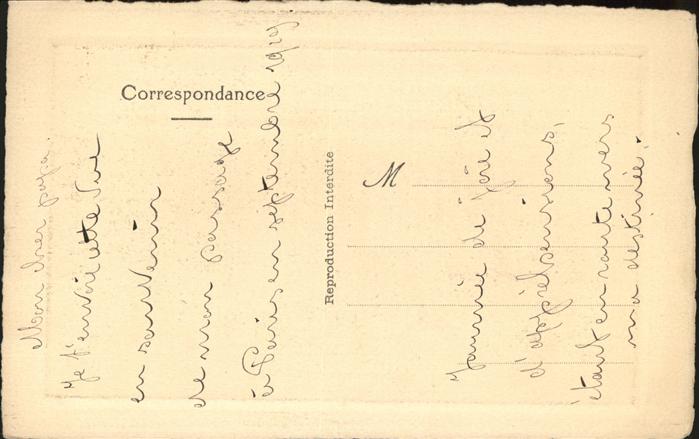 Correspondance
Mon cher papa
Je t'envoie cette vue
en souvenir
de mon passage
à Paris en septembre
Reproduction Interdite
M
Journée de joie et
d'appréhensions,
étant en route vers
ma destinée.